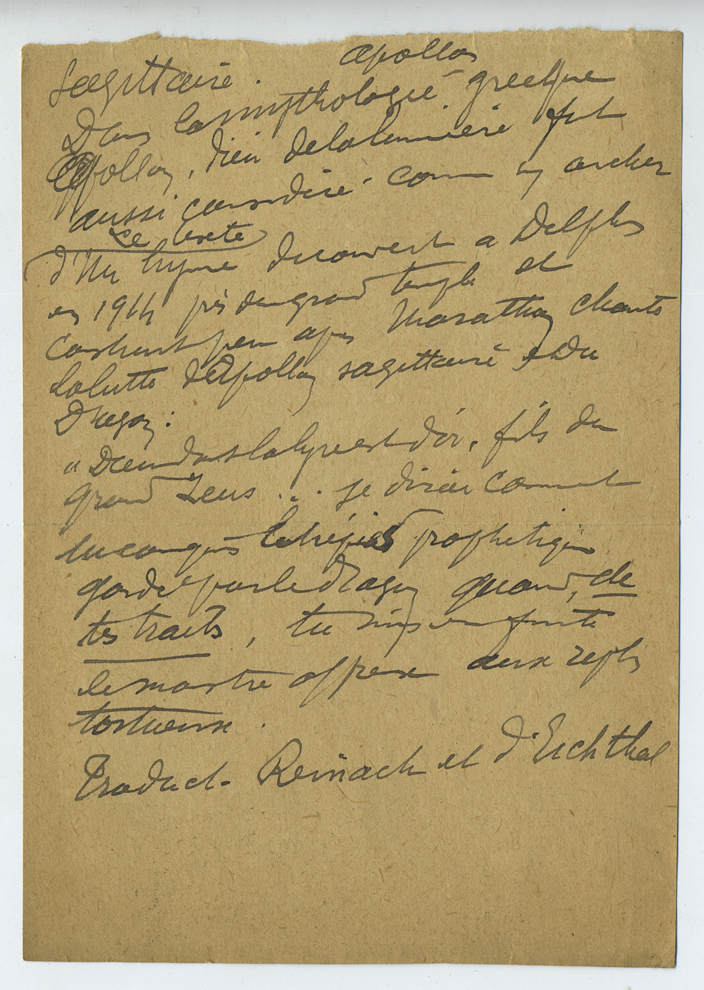 Sagittaire. Apollon
Dans la mythologie grecque
Apollon, dieu de la lumière fut
aussi considéré comme un archer
Le texte
d'un hymne découvert à Delphes
en 1914 près du grand temple et
peu après Marathon chante
la lutte d'Apollon sagittaire et du
Dragon :
« Dieu dont la lyre est d'or, fils du
grand Zeus ... je dirai comment
tu conquis le trépied prophétique
gardé par le dragon quand, de
tes traits, tu mis en fuite
le monstre affreux aux replis
tortueux.
Traduct. Reinach et d'Eichthal